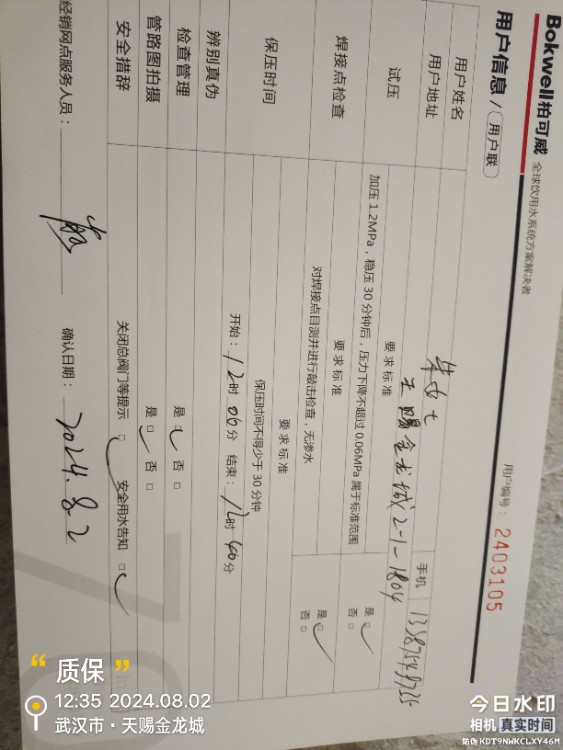 Bokwell柏可威 全球饮用水系统方案解决者
用户信息 / 用户联
用户编号： 2403105
用户姓名 朱女士 手机
用户地址 天赐金龙城2-1-1804
试压 要求标准
加压 1.2MPa，稳压 30 分钟后，压力下降不超过 0.06MPa 属于标准范围 是□ 否□
焊接点检查 要求标准
对焊接点目测并进行敲击检查，无渗水 是□ 否□
保压时间 要求标准
保压时间不得少于 30 分钟
开始：12时06分 结束：12时40分
辨别真伪 是□ 否□
检查管理
管路图拍摄 是□ 否□
安全措辞 关闭总阀门等提示 □ 安全用水告知 □
经销网点服务人员： 确认日期： 2024.8.2
“质保”
12:35 2024.08.02
武汉市·天赐金龙城
今日水印
相机 真实时间
防伪 KDT9NWKCLXY46M